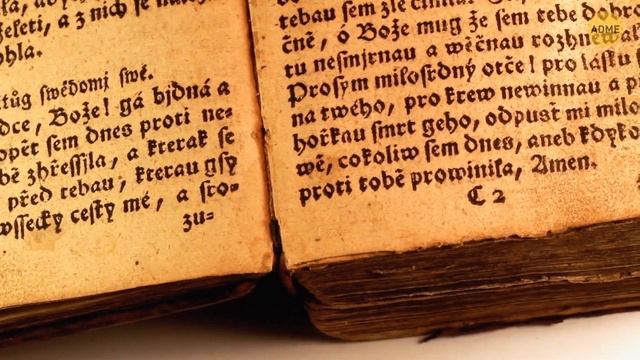 žeketi, a z nich se
ohla.
swědomj swé.
dce, Bože! gá bjdná a
opět sem dnes proti ne-
bě zhřessila, a kterak se
před tebau, kterau gsy
wssecky cesty mé, a sro-
zu-
tebau sem zle
čně, ó Bože mug že sem tebe
tu nesmjrnau a wěčnau
Prosym milosrdný otče! pro lásku
na twého, pro krew newinnau a
hořkau smrt geho, odpust mi
wě, cokoliw sem dnes, aneb kdyko
proti tobě prowinila, Amen.
C 2
ADME